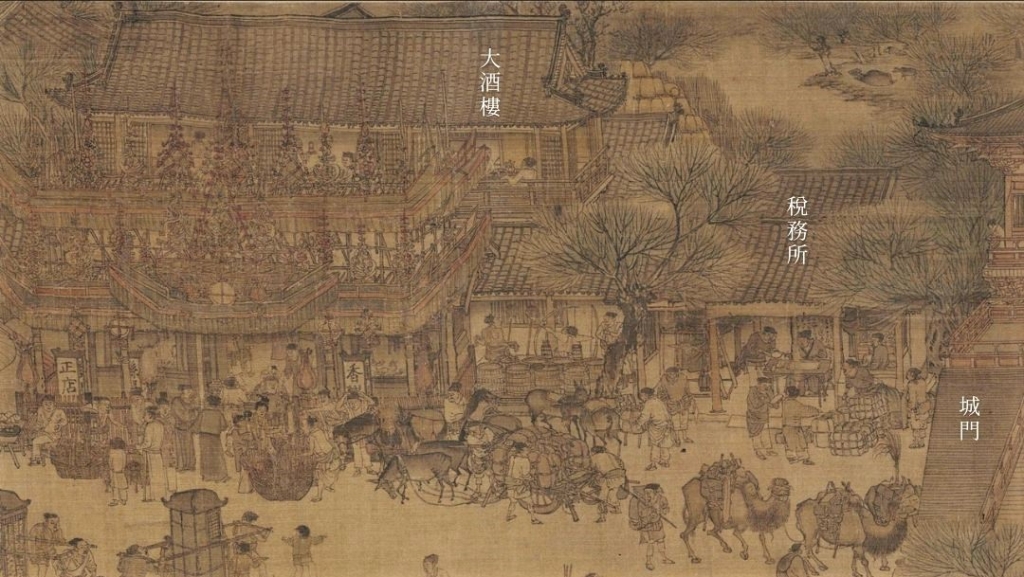 大酒樓
稅務所
城門
正店
香